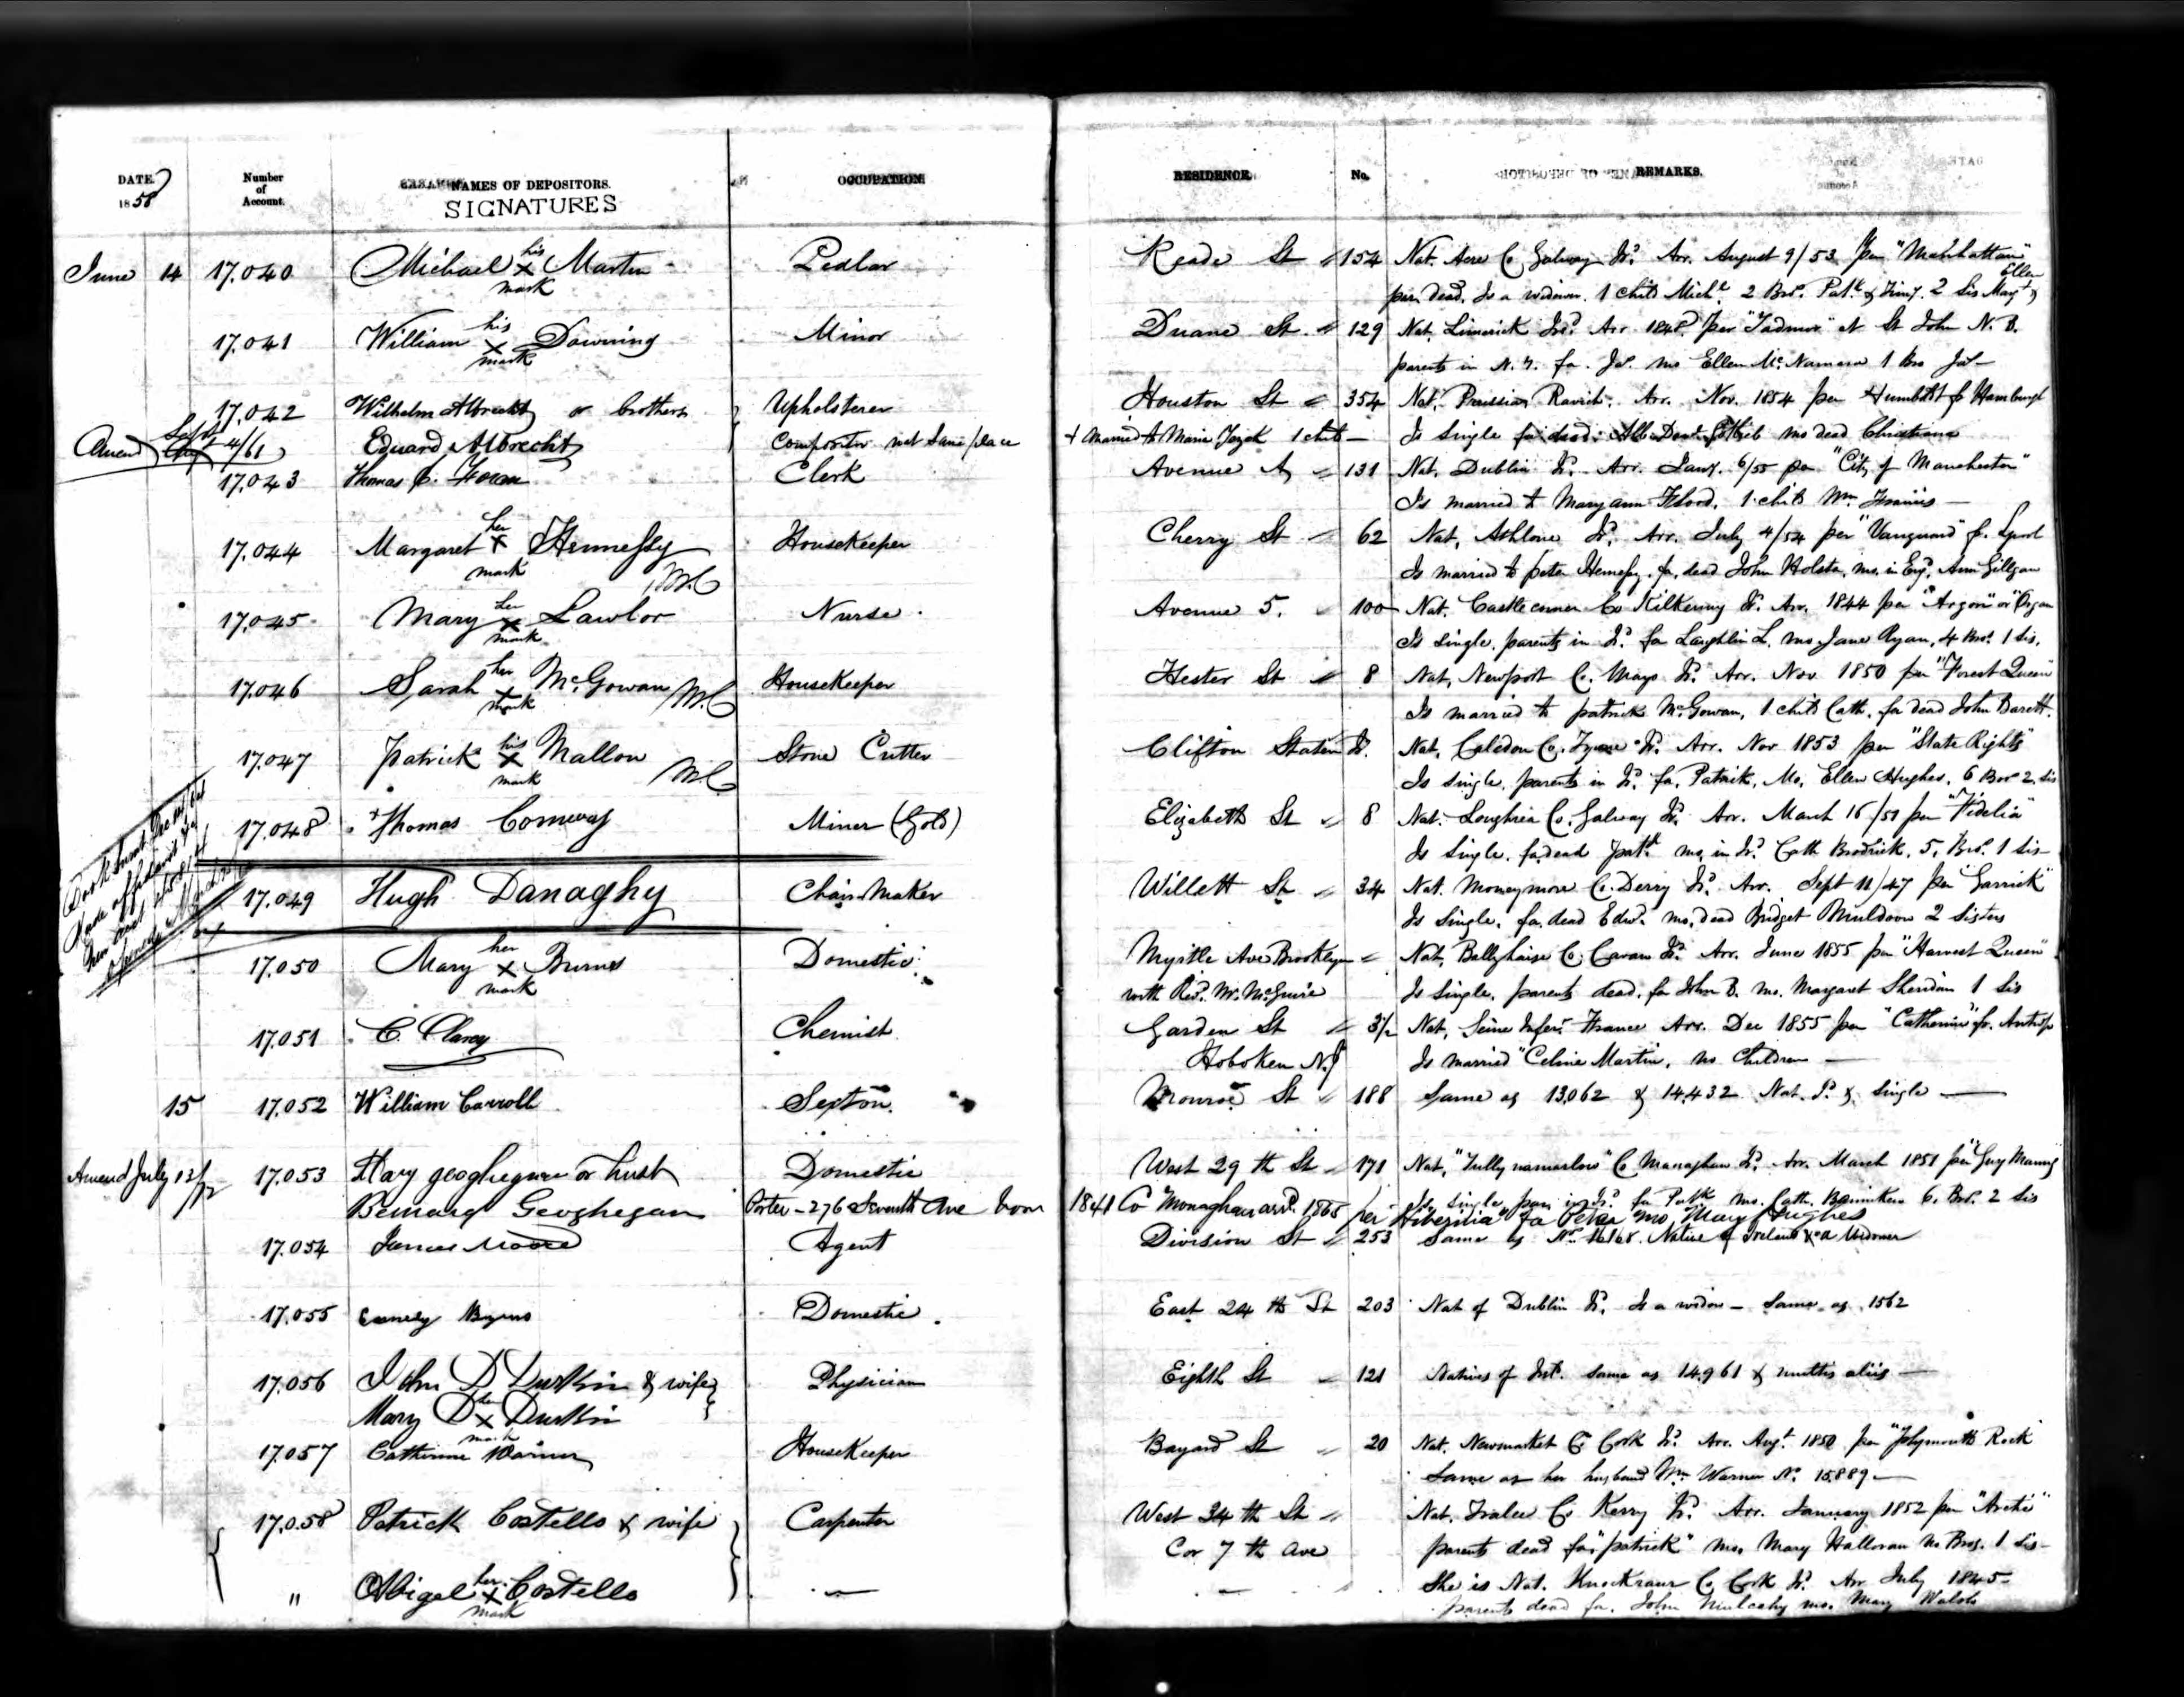 DATE. Number of Account. NAMES OF DEPOSITORS. OCCUPATION. RESIDENCE. No. REMARKS.
1858 SIGNATURES
June 14 17.040 Michael his x mark Martin Pedlar Reade St " 154 Nat. Co Galway Ird. Arr. August 9/53 per "Manhattan"
par. dead. Is a widower. 1 child Michl. 2 Bros. Patk & Timy. 2 Sis Mart & Ellen
17.041 William his x mark Downing Minor Duane St " 129 Nat. Limerick Ird. Arr 1848 per "Tadmor" at St John N. B.
parents in N. Y. fa. Jas. mo Ellen McNamara 1 Bro Jas -
17.042 Wilhelm Albrecht or brother Upholsterer Houston St " 354 Nat. Prussia Ravich. Arr. Nov. 1854 per Humboldt f Hamburgh
Amend Sept 4/61 Eduard Albrecht Compositor not Same place + Married to Maria 1 child - Is single fa. dead Gottlieb mo dead Christiana
17.043 Thomas Clerk Avenue A " 131 Nat. Dublin Ird. Arr. Jany. 6/55 per "City of Manchester"
Is married to Maryann Flood. 1 child Wm. Francis -
17.044 Margaret her x mark Hennessy Housekeeper Cherry St " 62 Nat. Athlone Ird. Arr. July 4/54 per "Vanguard" f. Lpool
Is married to Peter Hennessy. fa. dead John Holsta. mo. in Eng. Ann Gillgan
17.045 Mary her x mark Lawlor Nurse Avenue 5. " 100 Nat. Castlecomer Co Kilkenny Ird. Arr. 1844 per "Argon" or
Is single. parents in Ird. fa Laughlin L. mo Jane Ryan, 4 Bros. 1 Sis.
17.046 Sarah her x mark McGowan Housekeeper Hester St " 8 Nat. Newport Co. Mayo Ird. Arr. Nov. 1850 per "Forest Queen"
Is married to Patrick McGowan, 1 child Cath. fa dead John Barett.
17.047 Patrick his x mark Mallon Stone Cutter Clifton Staten Id. Nat. Caledon Co. Tyrone Ird. Arr. Nov 1853 per "State Rights"
Is single. parents in Ird. fa. Patrick, Mo. Ellen Hughes. 6 Bros 2 Sis
17.048 Thomas Conway Miner (Gold) Elizabeth St " 8 Nat. Loughrea Co. Galway Ird. Arr. March 16/51 per "Fidelia"
Is Single. fa. dead Patk. mo. in Ird. Cath Brodrick. 5. Bros. 1 Sis
17.049 Hugh Danaghy Chair Maker Willett St " 34 Nat. Moneymore Co. Derry Ird. Arr. Sept 11/47 per "Garrick"
Is Single. fa. dead Edwd. mo. dead Bridget Muldoon 2 Sisters
17.050 Mary her x mark Burns Domestic Myrtle Ave Brooklyn " Nat. Ballyhaise Co. Cavan Ird. Arr. June 1855 per "Harvest Queen"
with Revd. Mr. McGuire Is Single. parents dead. fa John B. mo. Margaret Sheridan 1 Sis
17.051 C. Chemist Garden St " 3½ Nat. Seine Infer. France Arr. Dec 1855 per "Catherine" fr. Antwp
Hoboken N.J Is married "Celine Martin, no Children -
15 17.052 William Carroll Sexton. Monroe St " 188 Same as 13.062 & 14.432 Nat. Id. & Single -
Amend July 17.053 Mary geoghegan or trust Domestic West 29 th St " 171 Nat. Co Monaghan Ird. Arr. March 1851 per "Guy Manng
Is single par. in Ird. fa Patk mo. Cath. 6. Bros. 2 Sis
Bernard Geoghegan Porter - 276 Seventh Ave born 1841 Co Monaghan arrd. 1865 per Hibernia fa Peter mo Mary Hughes
17.054 James Moore Agent Division St " 253 Same as No. 16168. Native of Ireland & a Widower
17.055 Byrns Domestic. East 24 th St 203 Nat of Dublin Ird. Is a widow - Same as 1562
17.056 John D Durkin & wife Physician Eighth St " 121 Natives of Ird. Same as 14.961 & multis aliis -
Mary D her x mark Durkin
17.057 Catherine Warner Housekeeper Bayard St " 20 Nat. Newmarket Co Cork Ird. Arr. Augt. 1850 per "Plymouth Rock
Same as her husband Wm Warner No. 15.889 -
17.058 Patrick Costello & wife Carpenter West 34 th St " Nat. Tralee Co Kerry Ird. Arr. January 1852 per "Arctic"
Cor 7 th Ave parents dead fa. "Patrick" mo. Mary Halloran no Bros. 1 Sis -
" Abigel her x mark Costello - - She is Nat. Co. Cork Ird. Arr July 1845 -
parents dead fa. John Mulcahy mo. Mary Walsh